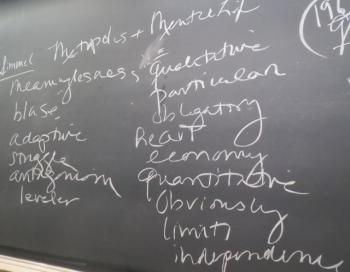 Simmel Metropolis + Mental Lif
meaninglessness
blasé
adaptive
struggle
antagonism
leveler
qualitative
particular
obligatory
heart
economy
quantitative
obviously
limits
independence
(196